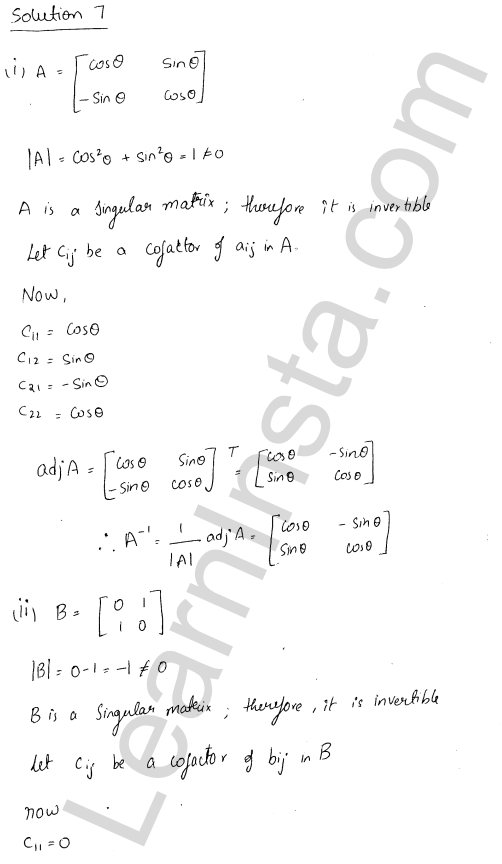 Solution 7
(i) A = [cosθ sinθ
-sinθ cosθ]
|A| = cos²θ + sin²θ = 1 ≠ 0
A is a singular matrix; therefore it is invertible
Let Cij be a cofactor of aij in A.
Now,
C11 = cosθ
C12 = sinθ
C21 = -sinθ
C22 = cosθ
adj A = [cosθ sinθ
-sinθ cosθ]ᵀ = [cosθ -sinθ
sinθ cosθ]
∴ A⁻¹ = 1/|A| adj A = [cosθ -sinθ
sinθ cosθ]
(ii) B = [0 1
1 0]
|B| = 0-1 = -1 ≠ 0
B is a singular matrix; therefore, it is invertible
Let Cij be a cofactor of bij in B
now
C11 = 0
LearnInsta.com